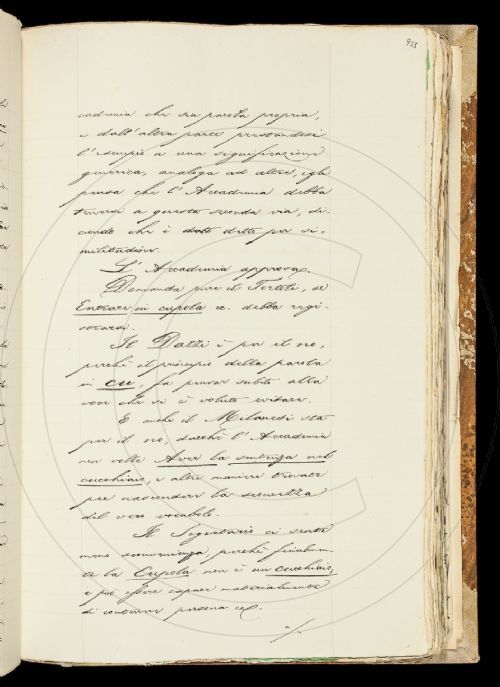 933
cademia che sia parola propria,
e dall'altra parte prestandosi
l'esempio a una significazione
generica, analoga ad altre, egli
pensa che l'Accademia debba
tenersi a questa seconda via, di-
cendo che è dato detto per si-
militudine.
L'Accademia approva.
Domanda pure il Tortoli, se
Entrare in cupola ec. debba regi-
strarsi.
Il Dazzi è per il no,
perché il principio della parola
in cu, fa pensar subito alla
voce che si è voluta evitare.
E anche il Milanesi sta
per il no, dacché l'Accademia
non volle Aver la sentenza nel
cucchiaio, e altre maniere trovate
per nascondere la sconcezza
del vero vocabolo.
Il Segretario ci sente
meno sconvenienza, perché finalmen-
te la Cupola non è un cucchiaio,
e può essere capace materialmente
di contenere persona ec.